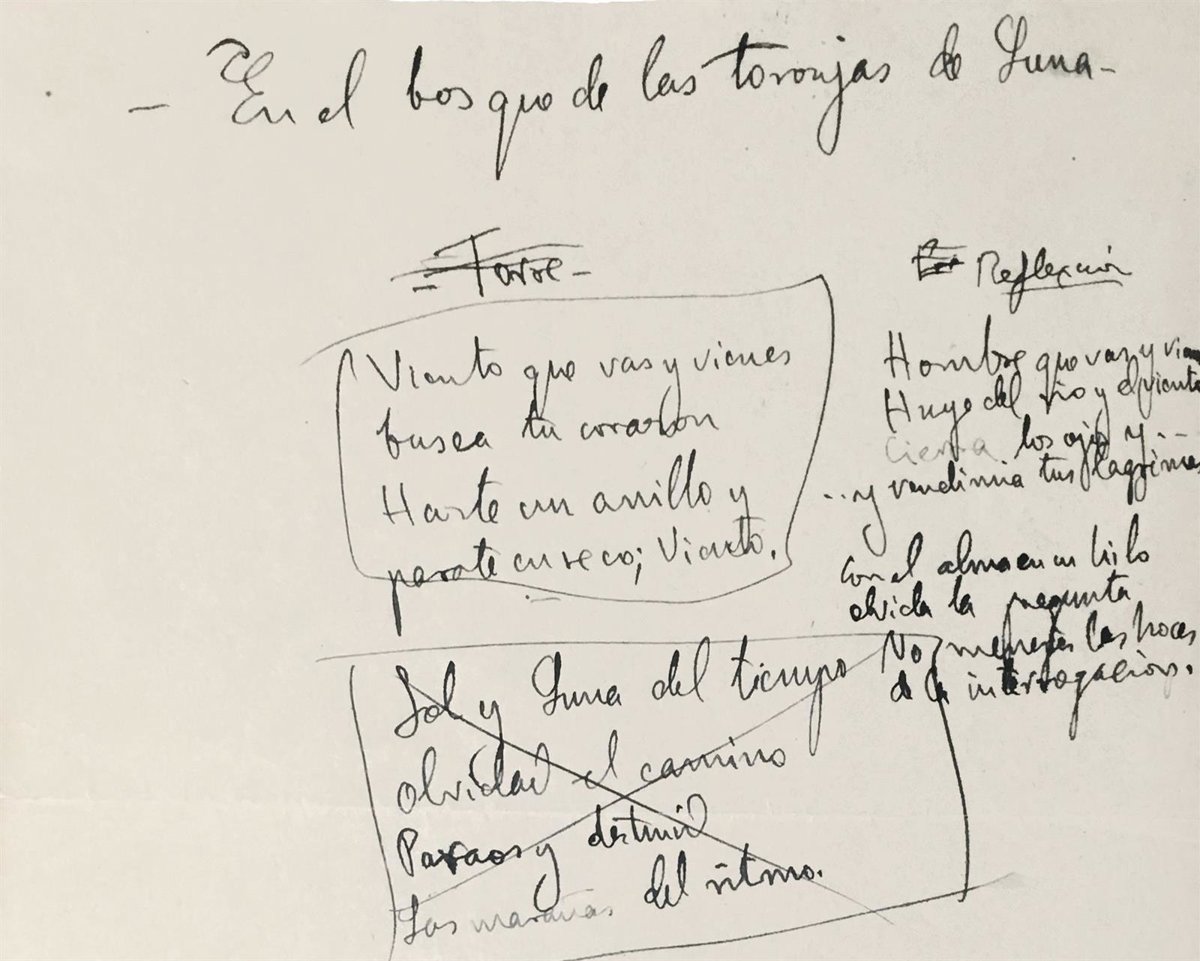 - En el bosque de las toronjas de Luna -
Torre -
Viento que vas y vienes
busca tu corazon
Hazte un anillo y
parate en seco; Viento.
Sol y Luna del tiempo
olvidad el camino
Paraos y destruid
Las marañas del ritmo.
Reflexión
Hombre que vas y vie
Huye del rio y el viento
Cierra los ojos y ...
... y vendimia tus lagrimas
Con el alma en un hilo
olvida la pregunta
No las hoces
de la interrogacion.